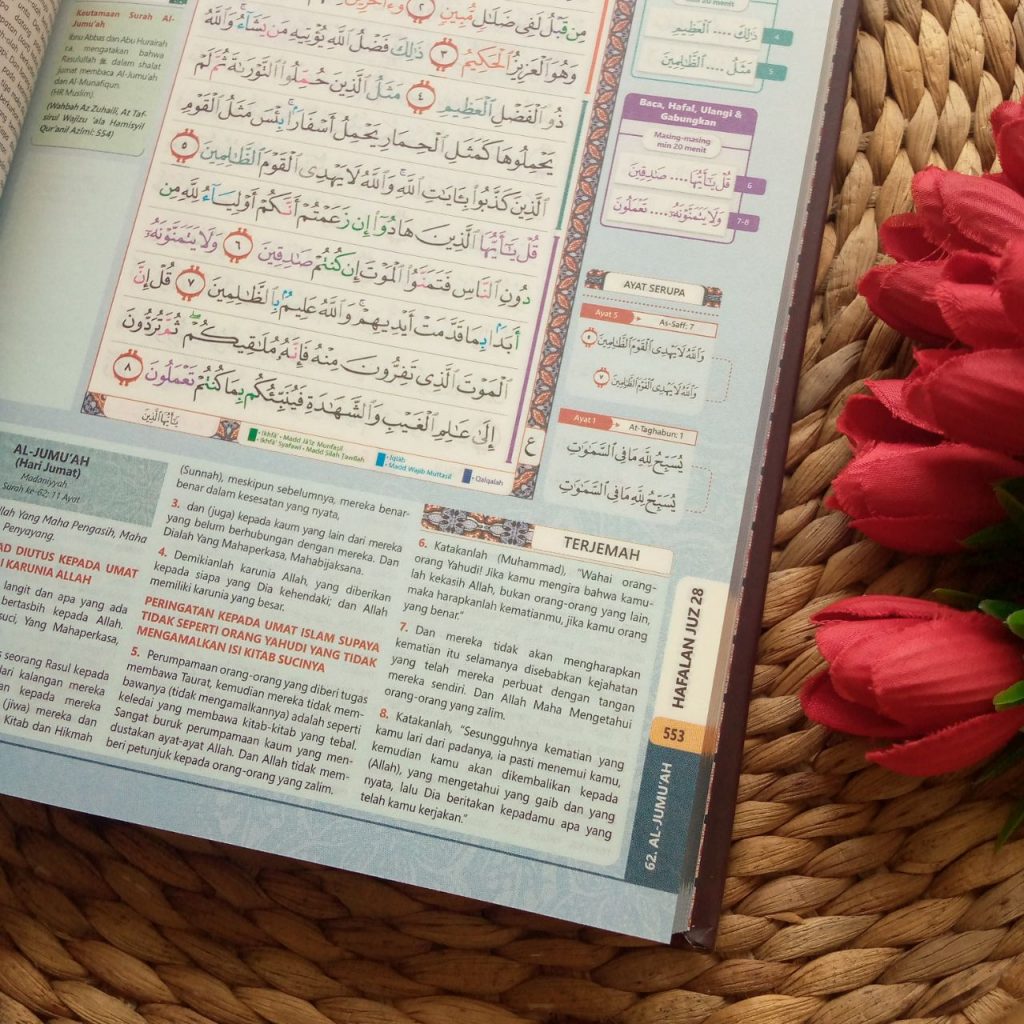 Keutamaan Surah Al-
Jumu'ah
Ibnu Abbas dan Abu Hurairah
r.a. mengatakan bahwa
Rasulullah ﷺ dalam shalat
jumat membaca Al-Jumu'ah
dan Al-Munafiqun.
(HR Muslim).
(Wahbah Az Zuhaili, At Taf-
sirul Wajizu 'ala Hamisyil
Qur'anil Azimi: 554)
مِن قَبْلُ لَفِى ضَلَـٰلٍ مُّبِينٍ ٢ وَءَاخَرِينَ
وَهُوَ ٱلْعَزِيزُ ٱلْحَكِيمُ ٣ ذَٰلِكَ فَضْلُ ٱللَّهِ يُؤْتِيهِ مَن يَشَآءُ ۚ وَٱللَّهُ
ذُو ٱلْفَضْلِ ٱلْعَظِيمِ ٤ مَثَلُ ٱلَّذِينَ حُمِّلُوا۟ ٱلتَّوْرَىٰةَ ثُمَّ لَمْ
يَحْمِلُوهَا كَمَثَلِ ٱلْحِمَارِ يَحْمِلُ أَسْفَارًۢا ۚ بِئْسَ مَثَلُ ٱلْقَوْمِ
ٱلَّذِينَ كَذَّبُوا۟ بِـَٔايَـٰتِ ٱللَّهِ ۚ وَٱللَّهُ لَا يَهْدِى ٱلْقَوْمَ ٱلظَّـٰلِمِينَ ٥
قُلْ يَـٰٓأَيُّهَا ٱلَّذِينَ هَادُوٓا۟ إِن زَعَمْتُمْ أَنَّكُمْ أَوْلِيَآءُ لِلَّهِ مِن
دُونِ ٱلنَّاسِ فَتَمَنَّوُا۟ ٱلْمَوْتَ إِن كُنتُمْ صَـٰدِقِينَ ٦ وَلَا يَتَمَنَّوْنَهُۥٓ
أَبَدًۢا بِمَا قَدَّمَتْ أَيْدِيهِمْ ۚ وَٱللَّهُ عَلِيمٌۢ بِٱلظَّـٰلِمِينَ ٧ قُلْ إِنَّ
ٱلْمَوْتَ ٱلَّذِى تَفِرُّونَ مِنْهُ فَإِنَّهُۥ مُلَـٰقِيكُمْ ۖ ثُمَّ تُرَدُّونَ
إِلَىٰ عَـٰلِمِ ٱلْغَيْبِ وَٱلشَّهَـٰدَةِ فَيُنَبِّئُكُم بِمَا كُنتُمْ تَعْمَلُونَ ٨
ع
يَـٰٓأَيُّهَا ٱلَّذِينَ
• Ikhfa' • Madd Ja'iz Munfasil
• Ikhfa' Syafawi • Madd Silah Tawilah
• Iqlab
• Madd Wajib Muttasil
• Qalqalah
min 20 menit
ذَٰلِكَ .... ٱلْعَظِيمِ 4
مَثَلُ .... ٱلظَّـٰلِمِينَ 5
Baca, Hafal, Ulangi &
Gabungkan
Masing-masing
min 20 menit
قُلْ يَـٰٓأَيُّهَا .... صَـٰدِقِينَ 6
وَلَا يَتَمَنَّوْنَهُۥٓ .... تَعْمَلُونَ 7-8
AYAT SERUPA
Ayat 5 As-Saff: 7
وَٱللَّهُ لَا يَهْدِى ٱلْقَوْمَ ٱلظَّـٰلِمِينَ ٥
وَٱللَّهُ لَا يَهْدِى ٱلْقَوْمَ ٱلظَّـٰلِمِينَ ٧
Ayat 1 At-Taghabun: 1
يُسَبِّحُ لِلَّهِ مَا فِى ٱلسَّمَـٰوَٰتِ
يُسَبِّحُ لِلَّهِ مَا فِى ٱلسَّمَـٰوَٰتِ
AL-JUMU'AH
(Hari Jumat)
Madaniyyah
Surah ke-62: 11 Ayat
Allah Yang Maha Pengasih, Maha
Penyayang.
DIUTUS KEPADA UMAT
KARUNIA ALLAH
langit dan apa yang ada
bertasbih kepada Allah.
suci, Yang Mahaperkasa,
seorang Rasul kepada
dari kalangan mereka
kepada mereka
(jiwa) mereka dan
Kitab dan Hikmah
(Sunnah), meskipun sebelumnya, mereka benar-
benar dalam kesesatan yang nyata,
3. dan (juga) kepada kaum yang lain dari mereka
yang belum berhubungan dengan mereka. Dan
Dialah Yang Mahaperkasa, Mahabijaksana.
4. Demikianlah karunia Allah, yang diberikan
kepada siapa yang Dia kehendaki; dan Allah
memiliki karunia yang besar.
PERINGATAN KEPADA UMAT ISLAM SUPAYA
TIDAK SEPERTI ORANG YAHUDI YANG TIDAK
MENGAMALKAN ISI KITAB SUCINYA
5. Perumpamaan orang-orang yang diberi tugas
membawa Taurat, kemudian mereka tidak mem-
bawanya (tidak mengamalkannya) adalah seperti
keledai yang membawa kitab-kitab yang tebal.
Sangat buruk perumpamaan kaum yang men-
dustakan ayat-ayat Allah. Dan Allah tidak mem-
beri petunjuk kepada orang-orang yang zalim.
TERJEMAH
6. Katakanlah (Muhammad), "Wahai orang-
orang Yahudi! Jika kamu mengira bahwa kamu-
lah kekasih Allah, bukan orang-orang yang lain,
maka harapkanlah kematianmu, jika kamu orang
yang benar."
7. Dan mereka tidak akan mengharapkan
kematian itu selamanya disebabkan kejahatan
yang telah mereka perbuat dengan tangan
mereka sendiri. Dan Allah Maha Mengetahui
orang-orang yang zalim.
8. Katakanlah, "Sesungguhnya kematian yang
kamu lari dari padanya, ia pasti menemui kamu,
kemudian kamu akan dikembalikan kepada
(Allah), yang mengetahui yang gaib dan yang
nyata, lalu Dia beritakan kepadamu apa yang
telah kamu kerjakan."
HAFALAN JUZ 28
553
62. AL-JUMU'AH